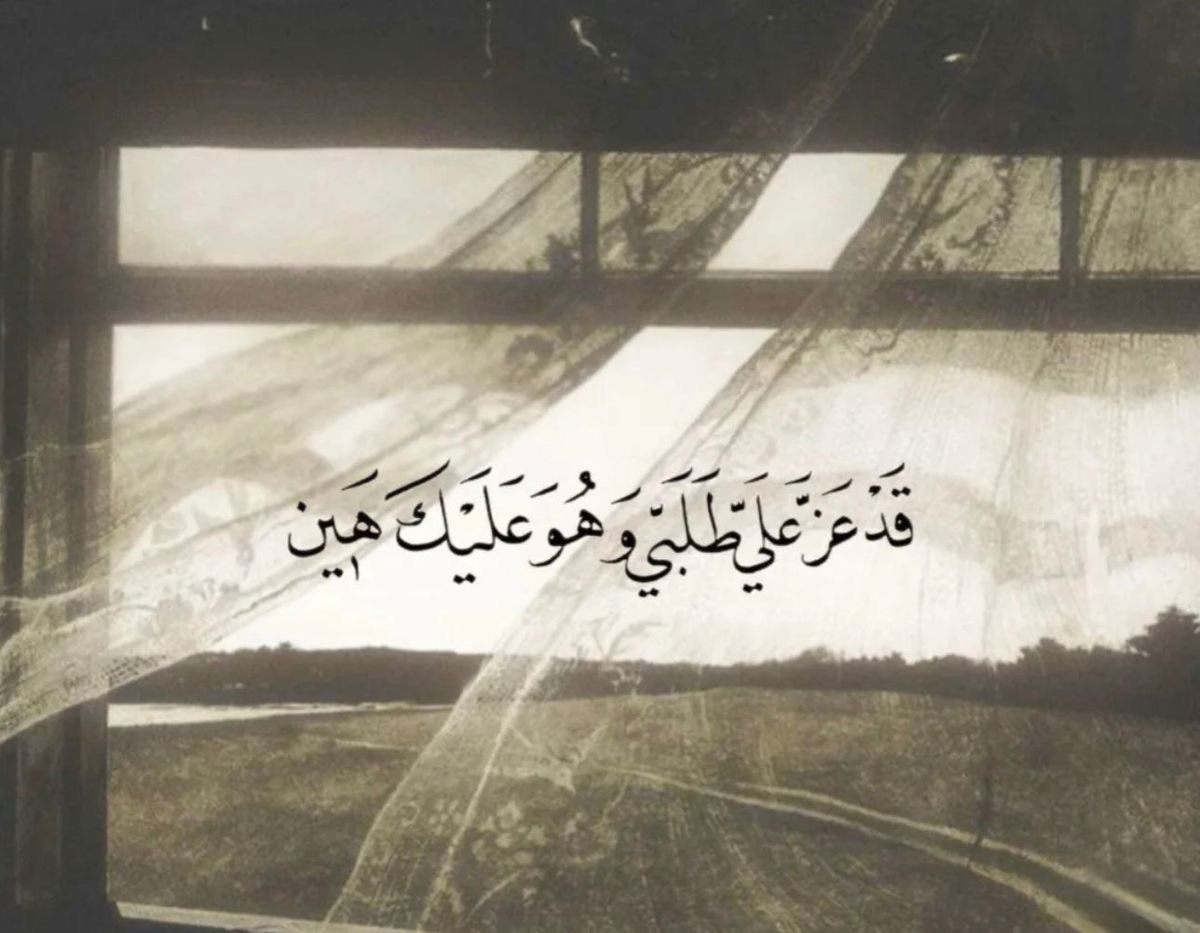 قَدْ عَزَّ عَلَيّ طَلَبَيِّ وَ هُوَ عَلَيْكَ هَيِن